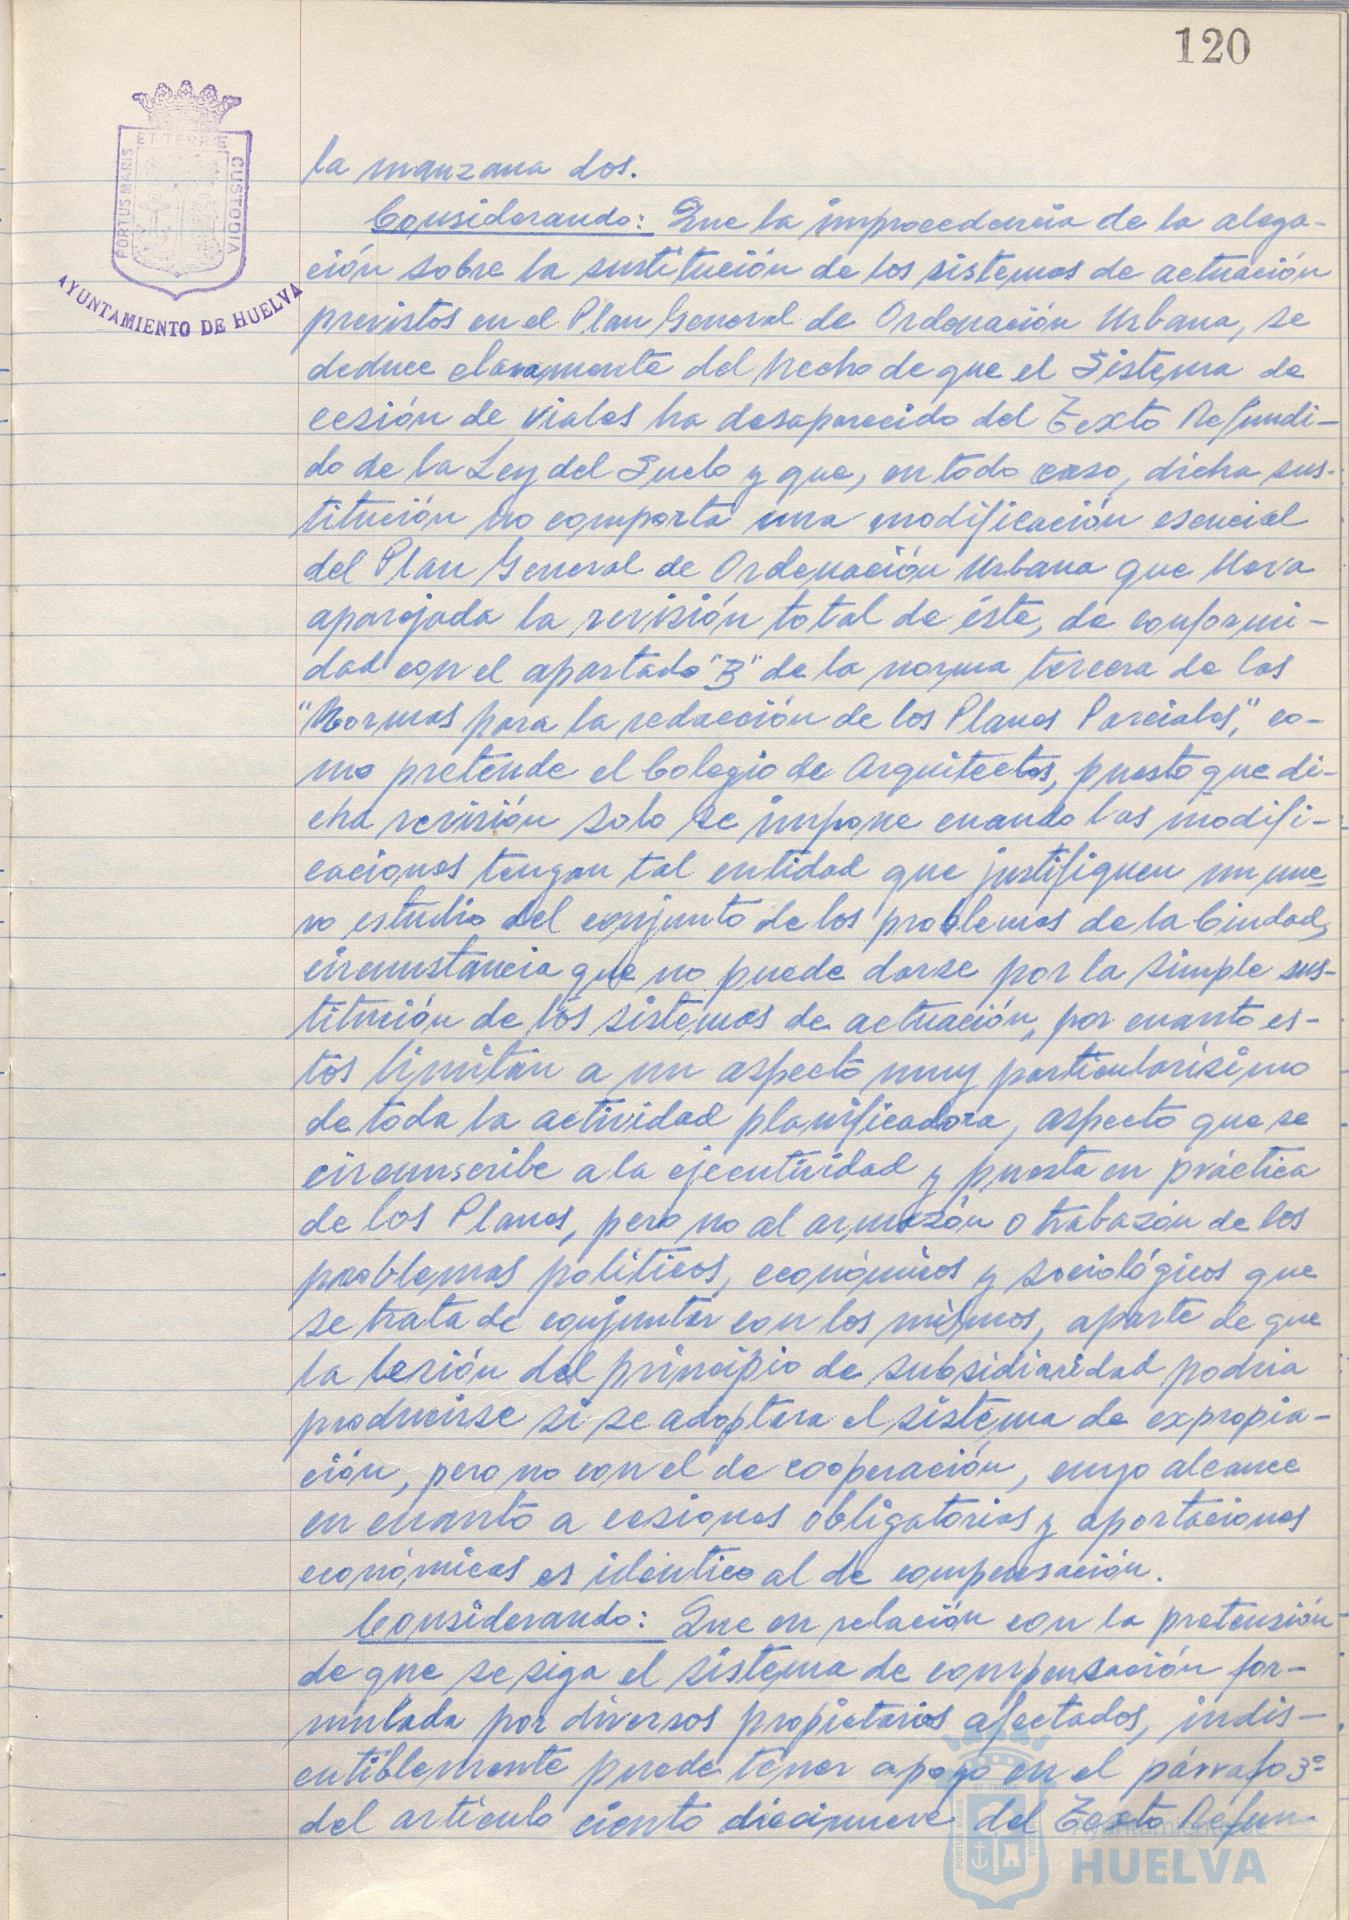 120
PORTUS MARIS ET TERRE CUSTODIA
AYUNTAMIENTO DE HUELVA
la manzana dos.
Considerando: Que la improcedencia de la alega-
ción sobre la sustitución de los sistemas de actuación
previstos en el Plan General de Ordenación Urbana, se
deduce claramente del hecho de que el Sistema de
cesión de viales ha desaparecido del Texto Refundi-
do de la Ley del Suelo y que, en todo caso, dicha sus-
titución no comporta una modificación esencial
del Plan General de Ordenación Urbana que lleva
aparejada la revisión total de éste, de conformi-
dad con el apartado "B" de la norma tercera de las
"Normas para la redacción de los Planes Parciales," co-
mo pretende el Colegio de Arquitectos, puesto que di-
cha revisión solo se impone cuando las modifi-
caciones tengan tal entidad que justifiquen un nue-
vo estudio del conjunto de los problemas de la Ciudad,
circunstancia que no puede darse por la simple sus-
titución de los sistemas de actuación, por cuanto es-
tos limitan a un aspecto muy particularísimo
de toda la actividad planificadora, aspecto que se
circunscribe a la ejecutividad y puesta en práctica
de los Planes, pero no al armazón o trabazón de los
problemas políticos, económicos y sociológicos que
se trata de conjuntar con los mismos, aparte de que
la lesión del principio de subsidiaridad podria
producirse si se adoptara el sistema de expropia-
ción, pero no con el de cooperación, cuyo alcance
en cuanto a cesiones obligatorias y aportaciones
económicas es idéntico al de compensación.
Considerando: Que en relación con la pretensión
de que se siga el sistema de compensación for-
mulada por diversos propietarios afectados, indis-
cutiblemente puede tener apoyo en el párrafo 3º
del artículo ciento diecinueve del Texto Refun-
Ayuntamiento de
HUELVA